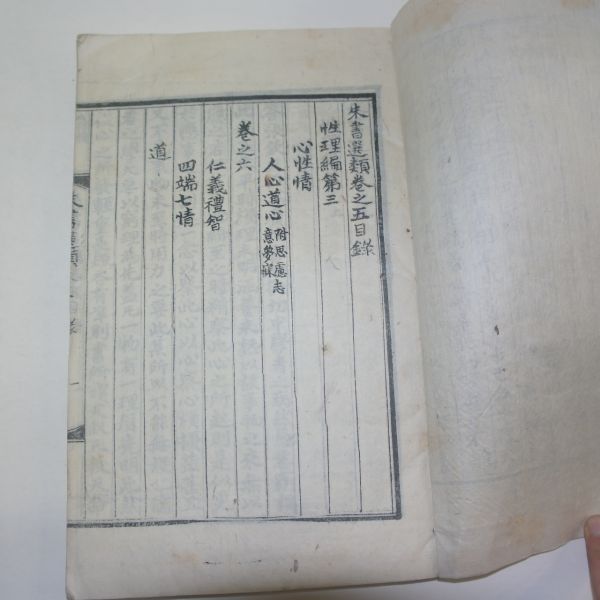 朱書選類卷之五目錄
性理編第三
心性情
人心道心 附思慮志
意夢寐
卷之六
仁義禮智
四端七情
道